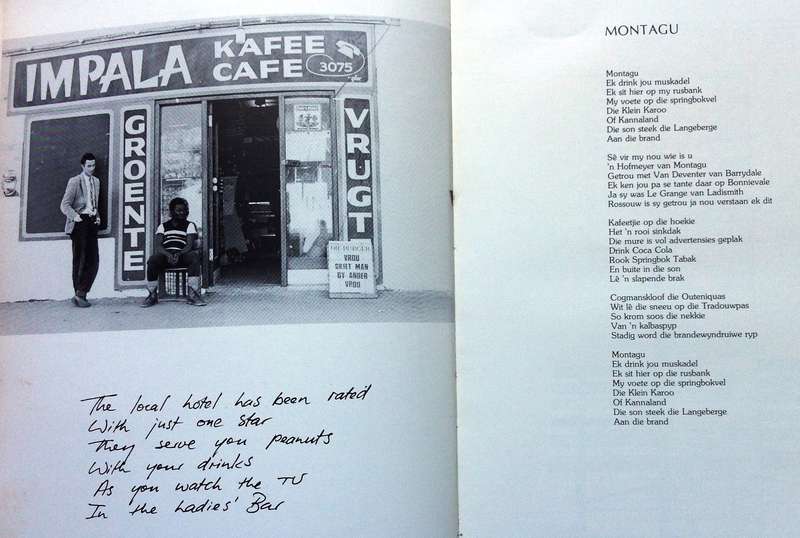 IMPALA KAFEE
CAFE
3075
GROENTE
VRUGT
DIE BURGER
VROU
SKIET MAN
BY ANDER
VROU
The local hotel has been rated
With just one star
They serve you peanuts
With your drinks
As you watch the TV
In the Ladies' Bar
MONTAGU
Montagu
Ek drink jou muskadel
Ek sit hier op my rusbank
My voete op die springbokvel
Die Klein Karoo
Of Kannaland
Die son steek die Langeberge
Aan die brand
Sê vir my nou wie is u
'n Hofmeyer van Montagu
Getrou met Van Deventer van Barrydale
Ek ken jou pa se tante daar op Bonnievale
Ja sy was Le Grange van Ladismith
Rossouw is sy getrou ja nou verstaan ek dit
Kafeetjie op die hoekie
Het 'n rooi sinkdak
Die mure is vol advertensies geplak
Drink Coca Cola
Rook Springbok Tabak
En buite in die son
Lê 'n slapende brak
Cogmanskloof die Outeniquas
Wit lê die sneeu op die Tradouwpas
So krom soos die nekkie
Van 'n kalbaspyp
Stadig word die brandewyndruiwe ryp
Montagu
Ek drink jou muskadel
Ek sit hier op die rusbank
My voete op die springbokvel
Die Klein Karoo
Of Kannaland
Die son steek die Langeberge
Aan die brand